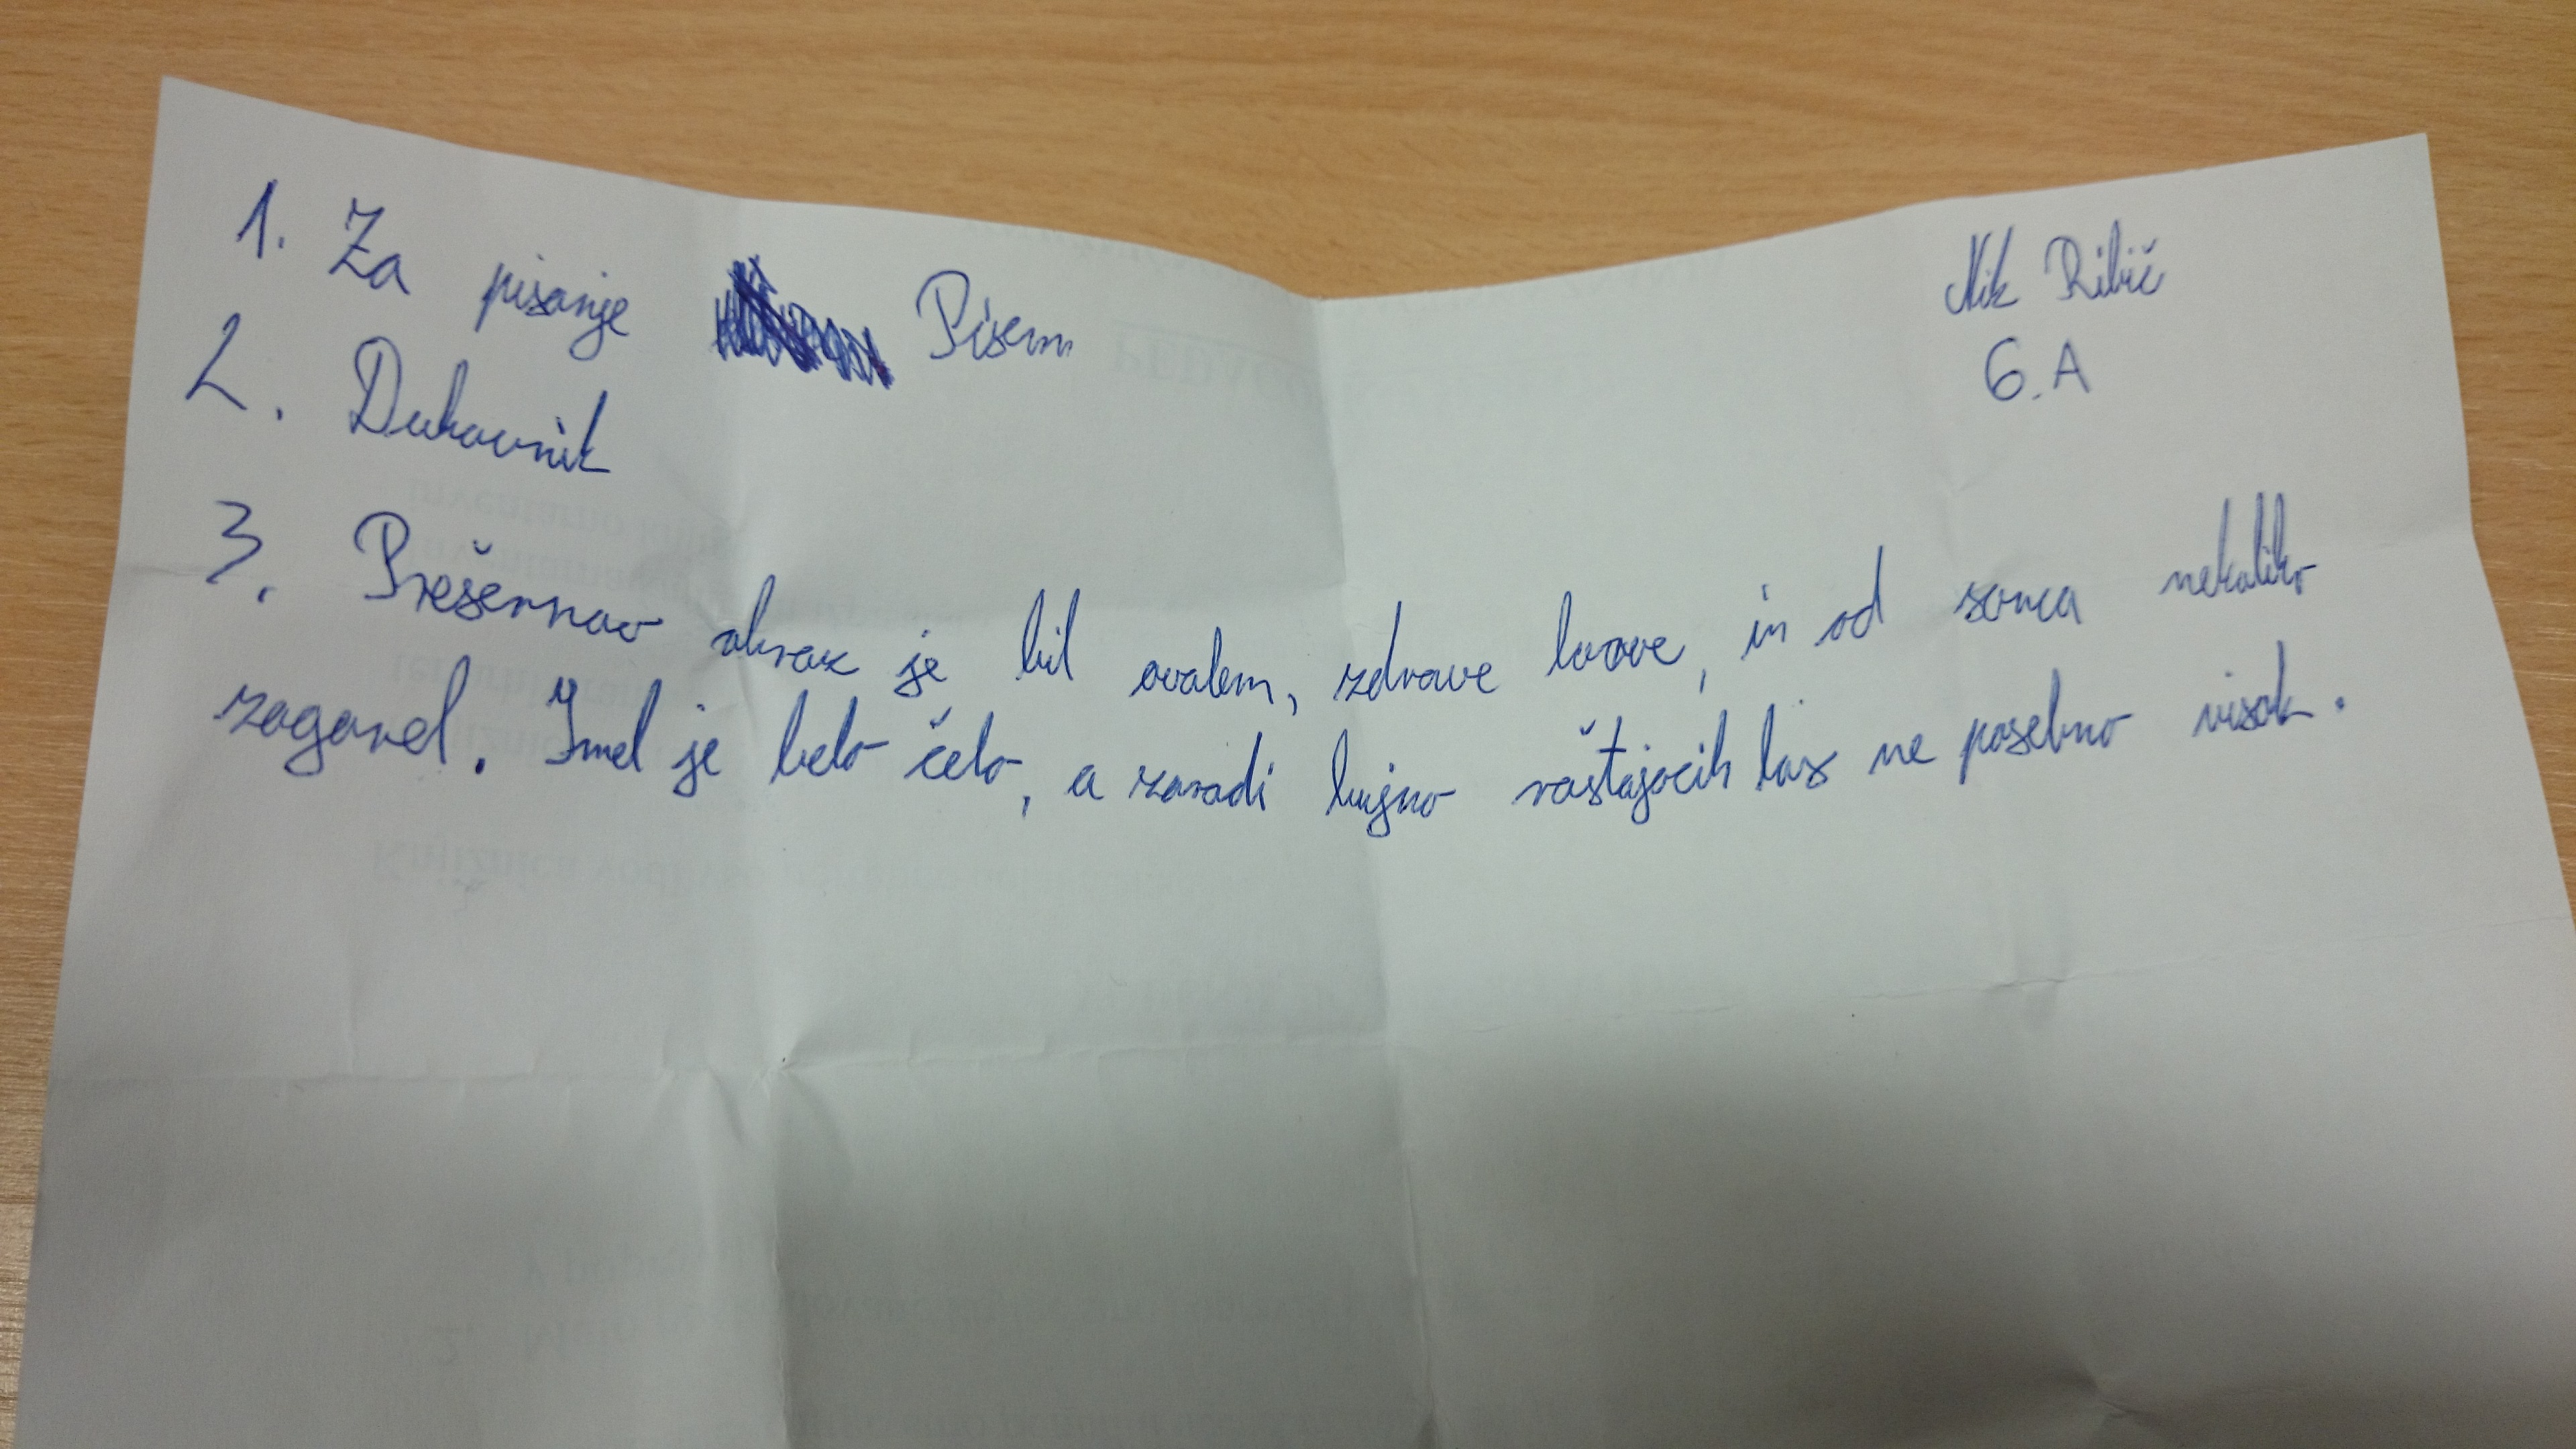 1. Za pisanje Pisem
Nik Ribič
6. A
2. Duhovnik
3. Prešernov obraz je bil ovalem, zdrave barve, in od sonca nekoliko
zagorel. Imel je belo čelo, a zaradi bujno raštajocih las ne posebno visok.